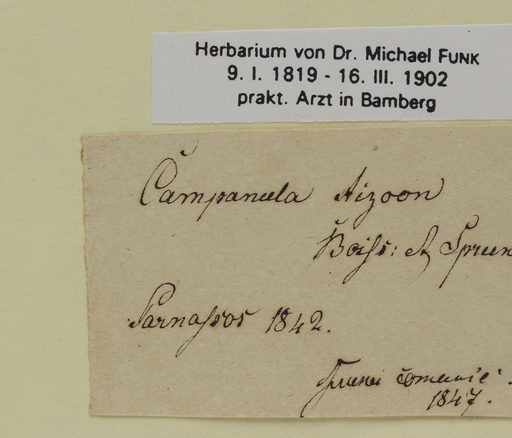 Herbarium von Dr. Michael FUNK
9. I. 1819 - 16. III. 1902
prakt. Arzt in Bamberg
Campanula Aizoon
Boiss: & Sprun
Parnassos 1842.
1847.